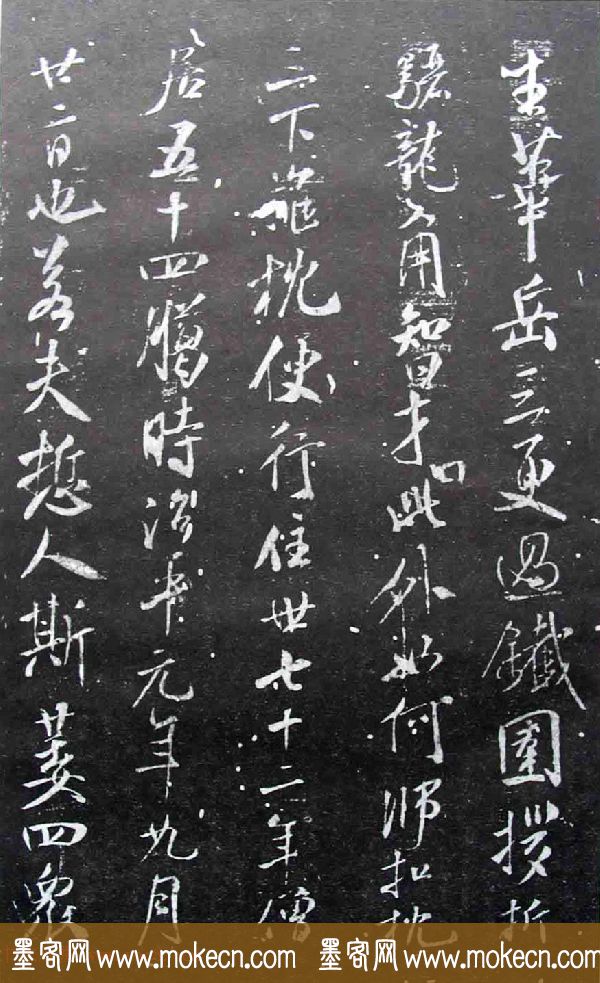 封華岳三更過鐵圍拶折
驪龍角智才曰此外如何師扣枕
三下推枕便行住世七十二年僧
居五十四臘時治平元年九月
廿二日也若夫悊人斯萎四眾
墨客网 www.mokecn.com 墨客网 www.mokecn.com